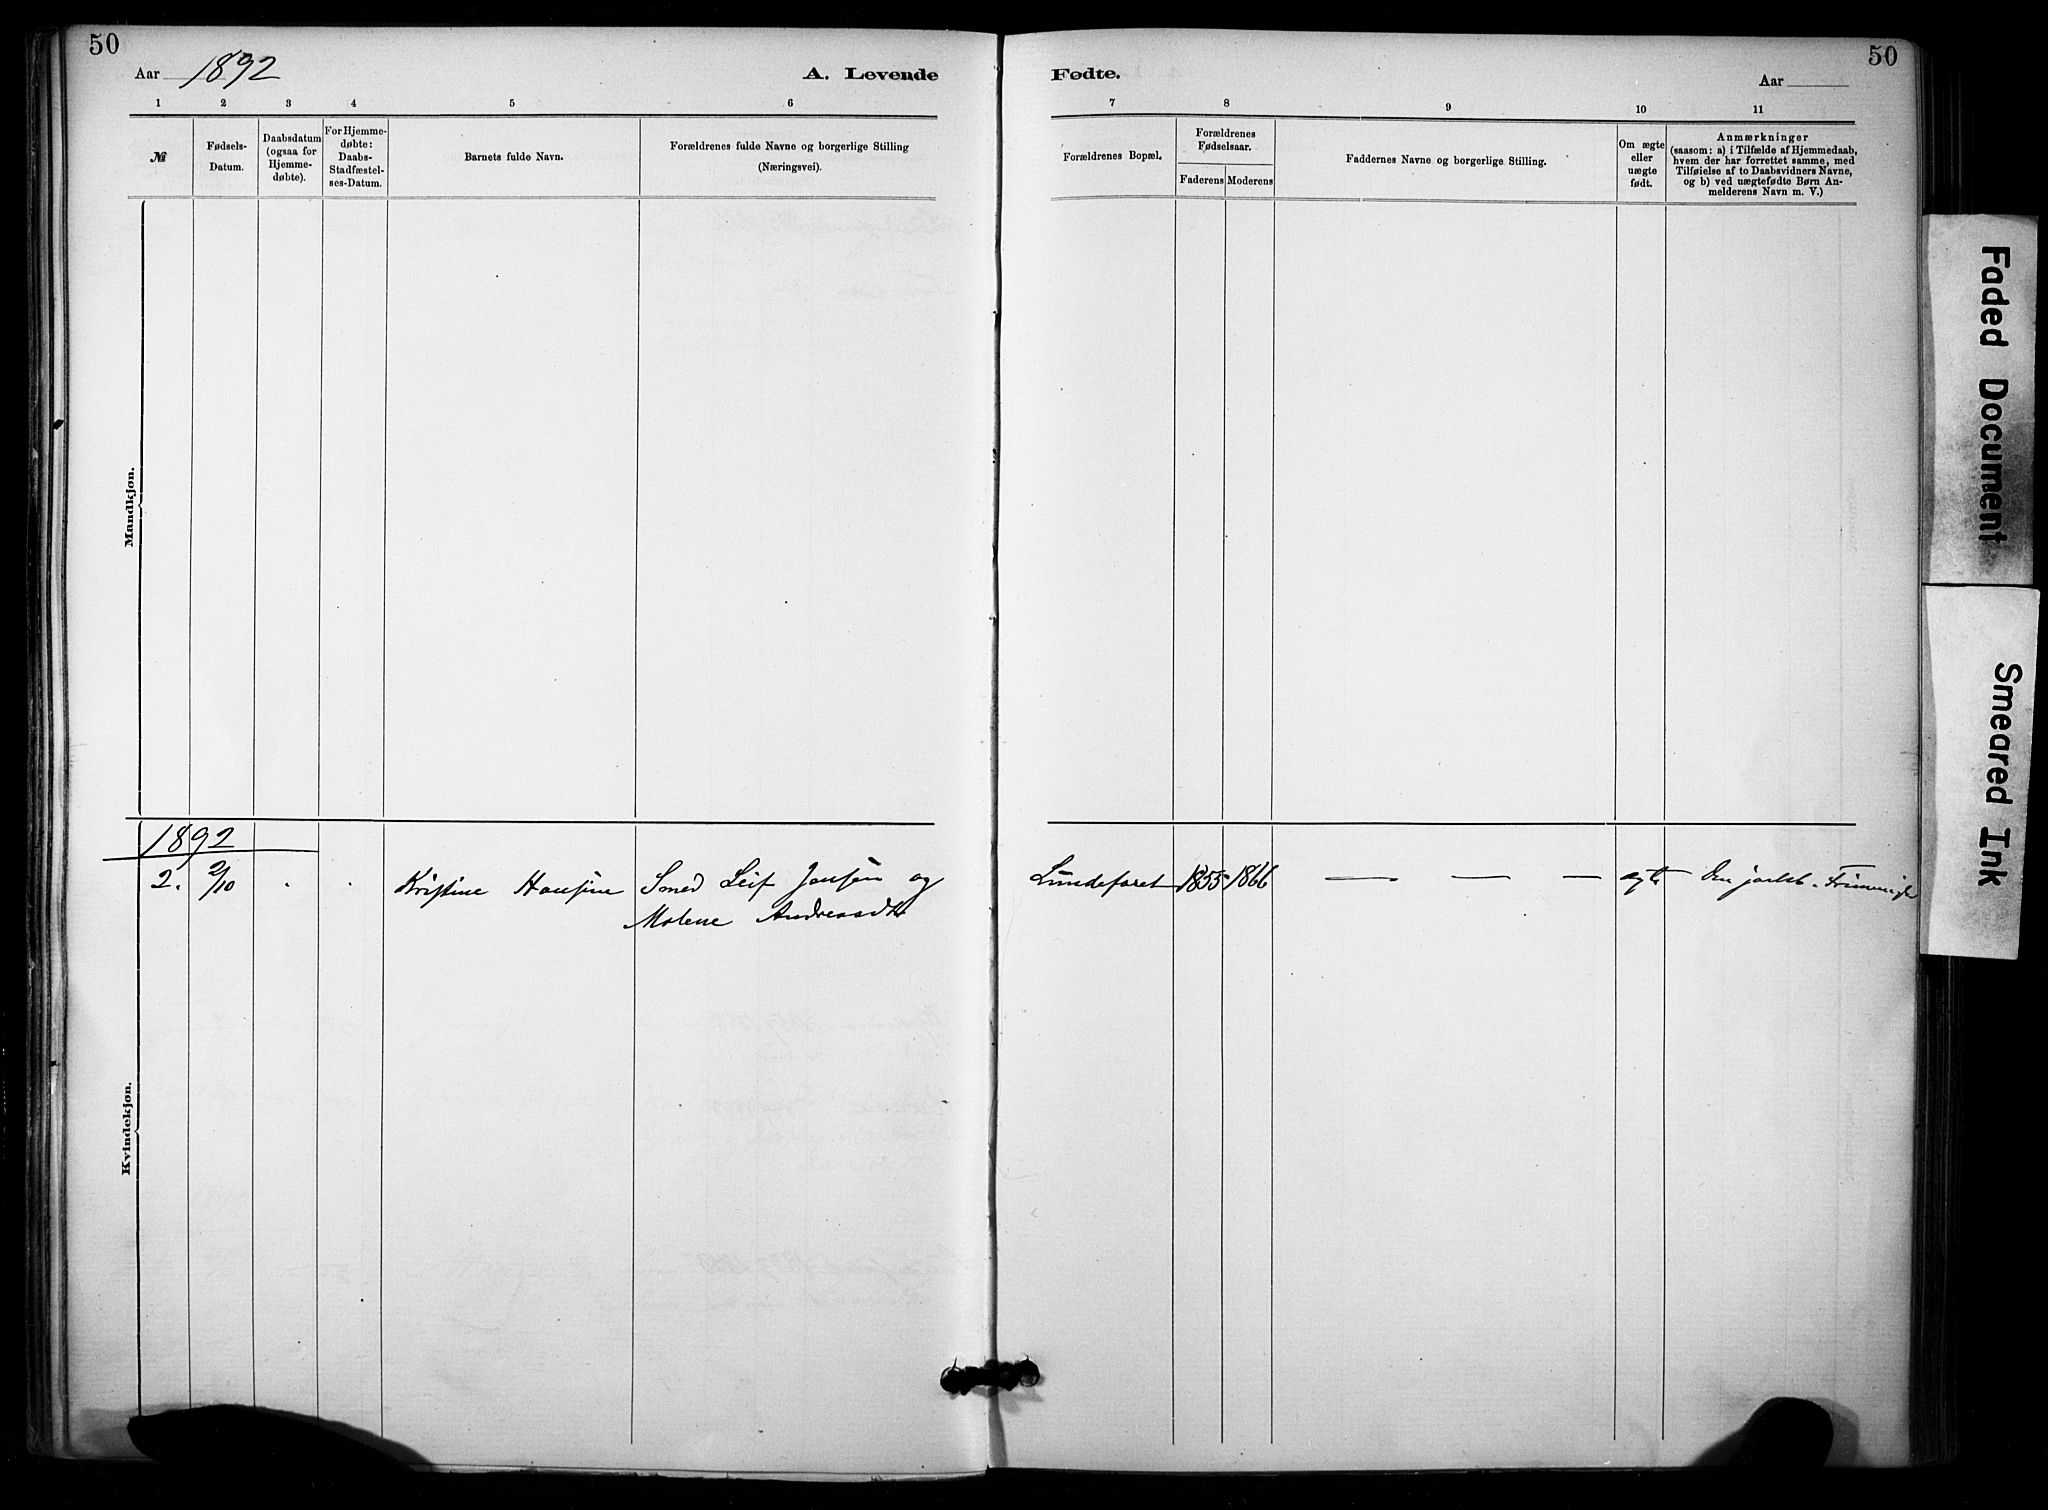 50
50
Aar 1892
A. Levende
Fødte.
Aar
1 2 3 4 5 6
7 8 9 10 11
№
Fødsels-
Datum.
Daabsdatum
(ogsaa for
Hjemme-
døbte).
For Hjemme-
døbte:
Daabs-
Stadfæstel-
ses-Datum.
Barnets fulde Navn.
Forældrenes fulde Navne og borgerlige Stilling
(Næringsvei).
Forældrenes Bopæl.
Forældrenes
Fødselsaar.
Faderens
Moderens
Faddernes Navne og borgerlige Stilling.
Om ægte
eller
uægte
født.
Anmærkninger
(saasom: a) i Tilfælde af Hjemmedaab,
hvem der har forrettet samme, med
Tilføielse af to Daabsvidners Navne,
og b) ved uægtefødte Børn An-
melderens Navn m. V.)
Mandkjøn.
1892
2. 2/10 Kristine Hansine Smed Leif Jensen og Lundefaret 1855 1866 — — — ægte
Malene Andreasdtr
Kvindekjøn.
Faded Document
Smeared Ink